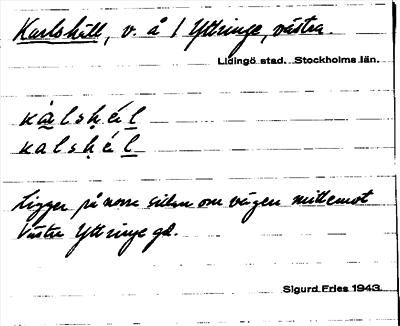 Karlshäll, v. å 1 Yttringe, västra.
Lidingö stad. Stockholms län.
kàlshél
kalshél
Ligger på norra sidan om vägen mittemot
Västra Yttringe gd.
Sigurd Fries 1943.